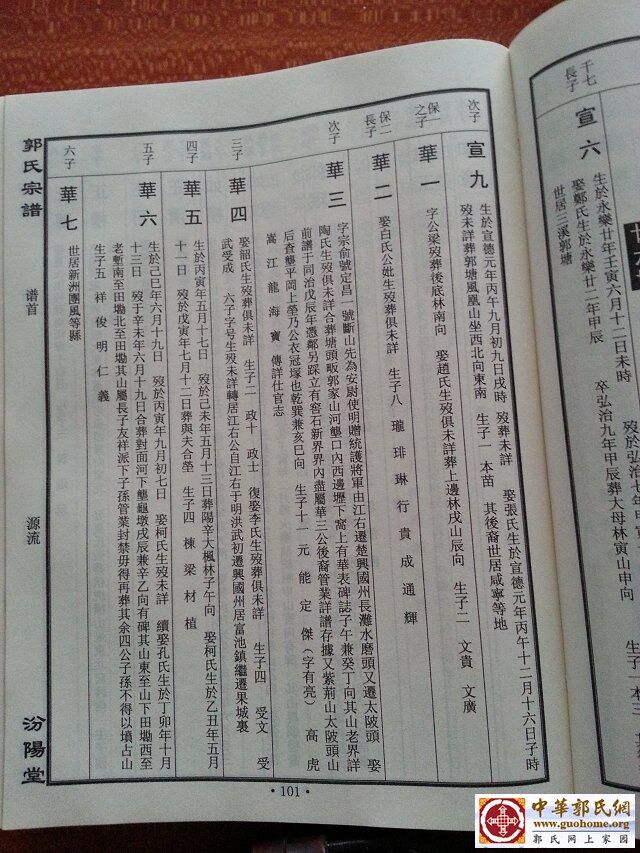 干七
長子
宣六
生於永樂廿年壬寅六月十二日未時
娶鄭氏生於永樂廿二年甲辰
卒弘治九年甲辰葬大母林寅山申向
世居三溪郭塘
次子
宣九
生於宣德元年丙午九月初九日戌時 歿葬未詳 娶張氏生於宣德元年丙午十二月十六日子時
歿未詳葬郭塘風凰山坐西北向東南 生子一 本苗 其後裔世居咸寧等地
保一
之子
華一
字公梁歿葬後底林南向 娶趙氏生歿俱未詳葬上邊林戌山辰向 生子二 文貴 文廣
保二
長子
華二
娶白氏公妣生歿葬俱未詳 生子八 瓏 琲 琳 行 貴 成 通 輝
次子
華三
字宗俞號定昌一號斷山先為安尉使明贈統護將軍由江右遷楚興國州長灘水磨頭又遷太陂頭 娶
陶氏生歿俱未詳合葬塘頭畈郭家山河壟口內西邊壢下窩上有華表碑誌子午兼癸丁向其山老界詳
前譜于同治戊辰年憑鄰另踩立有窖石新界界內盡屬華三公後裔管業詳譜存據又紫荊山太陂頭山
后查龔平岡上塋乃公衣冠塚也乾巽兼亥巳向 生子十一 元 能 定 傑(字有亮) 高 虎
嵩 江 龍 海 寶 傳詳仕官志
三子
華四
娶韶氏生歿葬俱未詳 生子二 政十 政士 復娶李氏生歿葬俱未詳 生子四 受文 受
武受成 六子字号生歿未詳轉居江右公自江右于明洪武初遷興國州居富池鎮繼遷果城裹
四子
華五
生於丙寅年五月十七日 歿於己未年五月十三日葬陽辛大楓林子午向 娶柯氏生於乙丑年五月
十一日 歿於戊寅年七月十二日葬與夫合塋 生子四 棟 梁 材 植
五子
華六
生於己巳年六月十九日 歿於丙寅年九月初七日 娶柯氏生歿未詳 續娶孔氏生於丁卯年十月
十三日 歿于辛未年六月十九日合葬對面河下壟龜墩戌辰兼辛乙向有碑其山東至山下田塝西至
老塹南至田塝北至田塝其山屬長子友祥派下子孫管業封禁毋得再葬其余四公子孫不得以墳占山
生子五 祥 俊 明 仁 義
六子
華七
世居新洲團風等縣
郭氏宗譜
谱首
源流
汾陽堂
·101·
中華郭氏網
www.guohome.org
郭氏網上家園